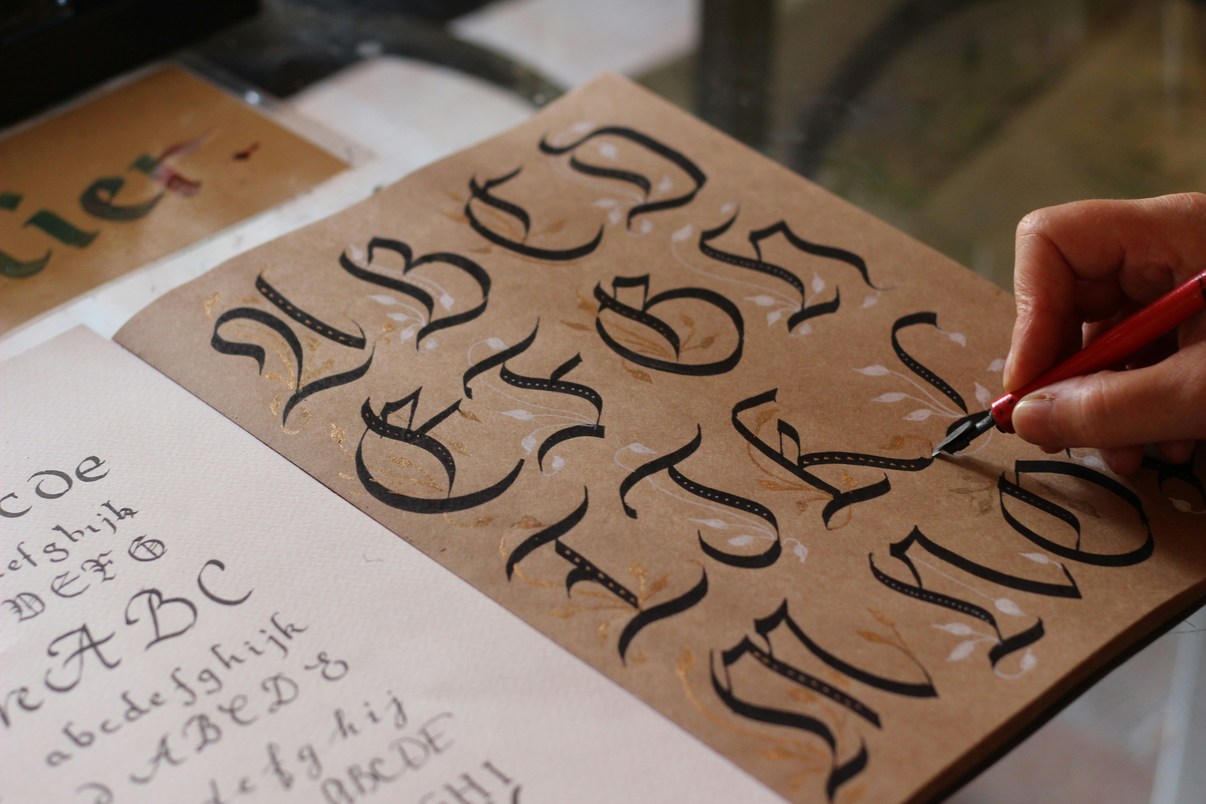 lier
A B C D
E F G H
I J K L
M N O
c de
efghijk
DEFG
A B C
abcdefghijk
A B C D E
efghij
ABCDE
GHI